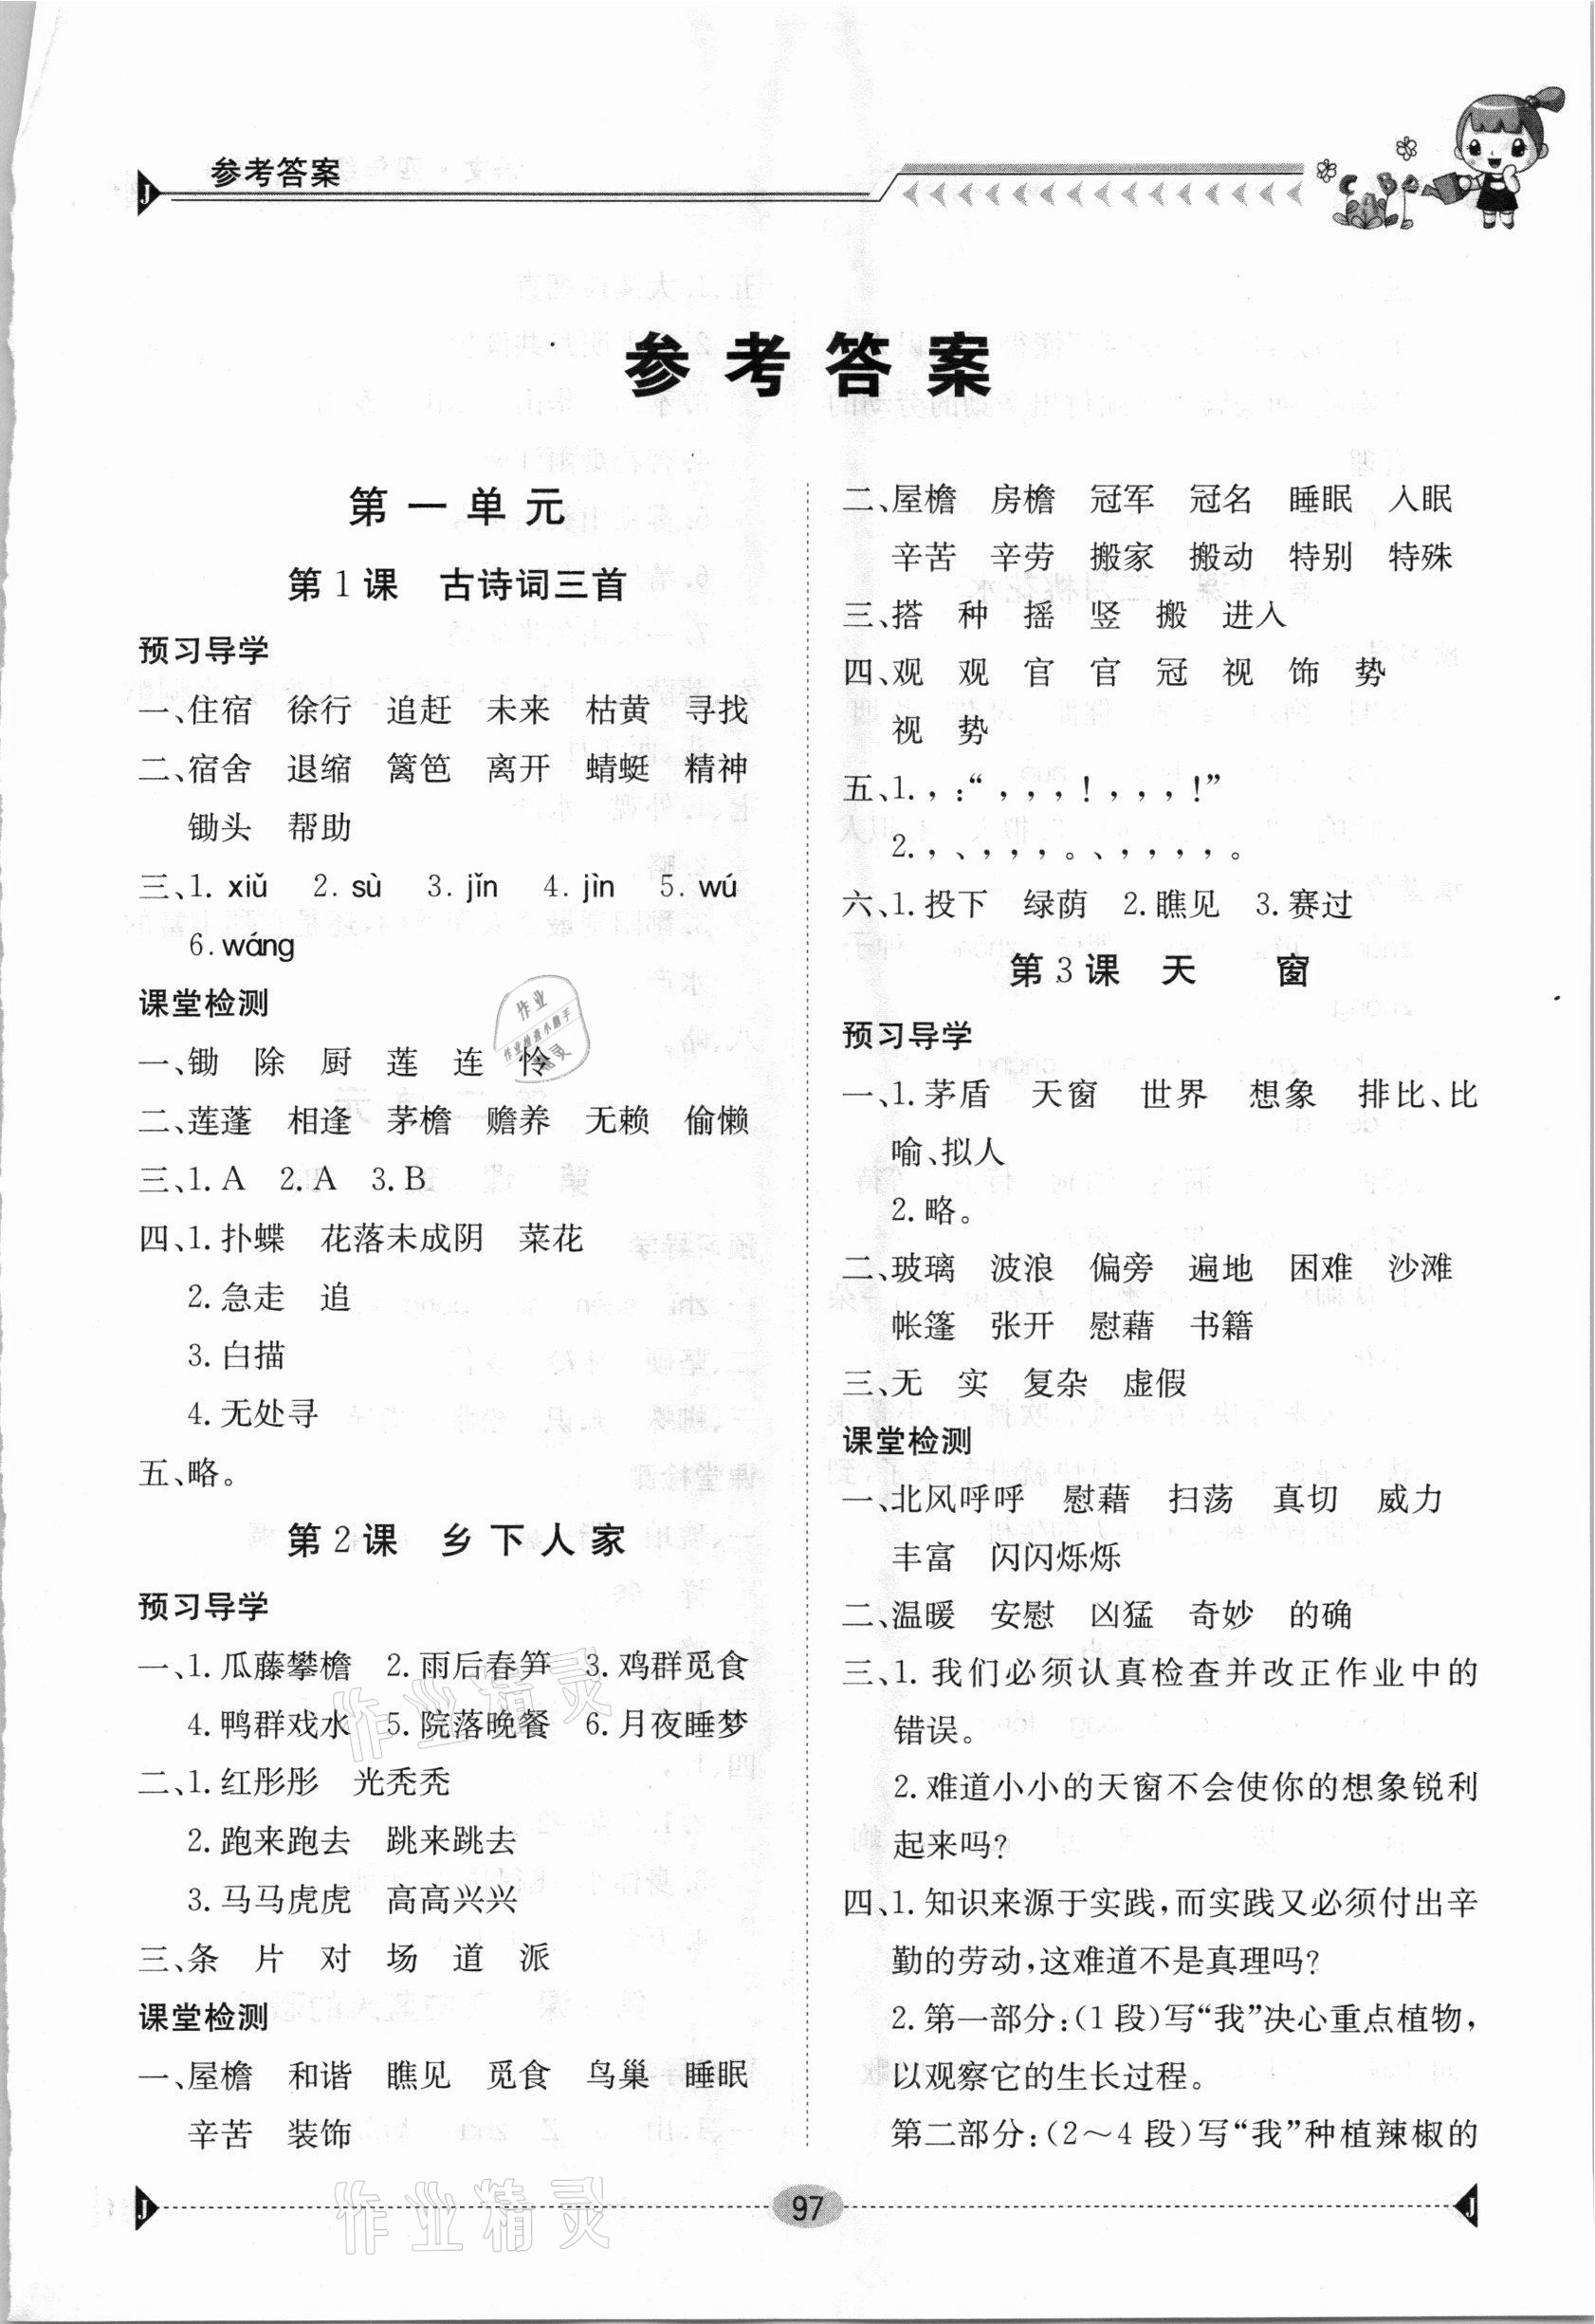 参考答案
参考答案
第一单元
第1课 古诗词三首
预习导学
一、住宿 徐行 追赶 未来 枯黄 寻找
二、宿舍 退缩 篱笆 离开 蜻蜓 精神
锄头 帮助
三、1. xiǔ 2. sù 3. jǐn 4. jìn 5. wú
6. wáng
课堂检测
一、锄 除 厨 莲 连 怜
二、莲蓬 相逢 茅檐 赡养 无赖 偷懒
三、1. A 2. A 3. B
四、1. 扑蝶 花落未成阴 菜花
2. 急走 追
3. 白描
4. 无处寻
五、略。
第2课 乡下人家
预习导学
一、1. 瓜藤攀檐 2. 雨后春笋 3. 鸡群觅食
4. 鸭群戏水 5. 院落晚餐 6. 月夜睡梦
二、1. 红彤彤 光秃秃
2. 跑来跑去 跳来跳去
3. 马马虎虎 高高兴兴
三、条 片 对 场 道 派
课堂检测
一、屋檐 和谐 瞧见 觅食 鸟巢 睡眠
辛苦 装饰
二、屋檐 房檐 冠军 冠名 睡眠 入眠
辛苦 辛劳 搬家 搬动 特别 特殊
三、搭 种 摇 竖 搬 进入
四、观 观 官 官 冠 视 饰 势
视 势
五、1. ，：“，，，！，，，！”
2. ，、，，，。、，，，，。
六、1. 投下 绿荫 2. 瞧见 3. 赛过
第3课 天 窗
预习导学
一、1. 茅盾 天窗 世界 想象 排比、比
喻、拟人
2. 略。
二、玻璃 波浪 偏旁 遍地 困难 沙滩
帐篷 张开 慰藉 书籍
三、无 实 复杂 虚假
课堂检测
一、北风呼呼 慰藉 扫荡 真切 威力
丰富 闪闪烁烁
二、温暖 安慰 凶猛 奇妙 的确
三、1. 我们必须认真检查并改正作业中的
错误。
2. 难道小小的天窗不会使你的想象锐利
起来吗？
四、1. 知识来源于实践，而实践又必须付出辛
勤的劳动，这难道不是真理吗？
2. 第一部分：（1段）写“我”决心重点植物，
以观察它的生长过程。
第二部分：（2～4段）写“我”种植辣椒的
97
作业精灵
作业精灵